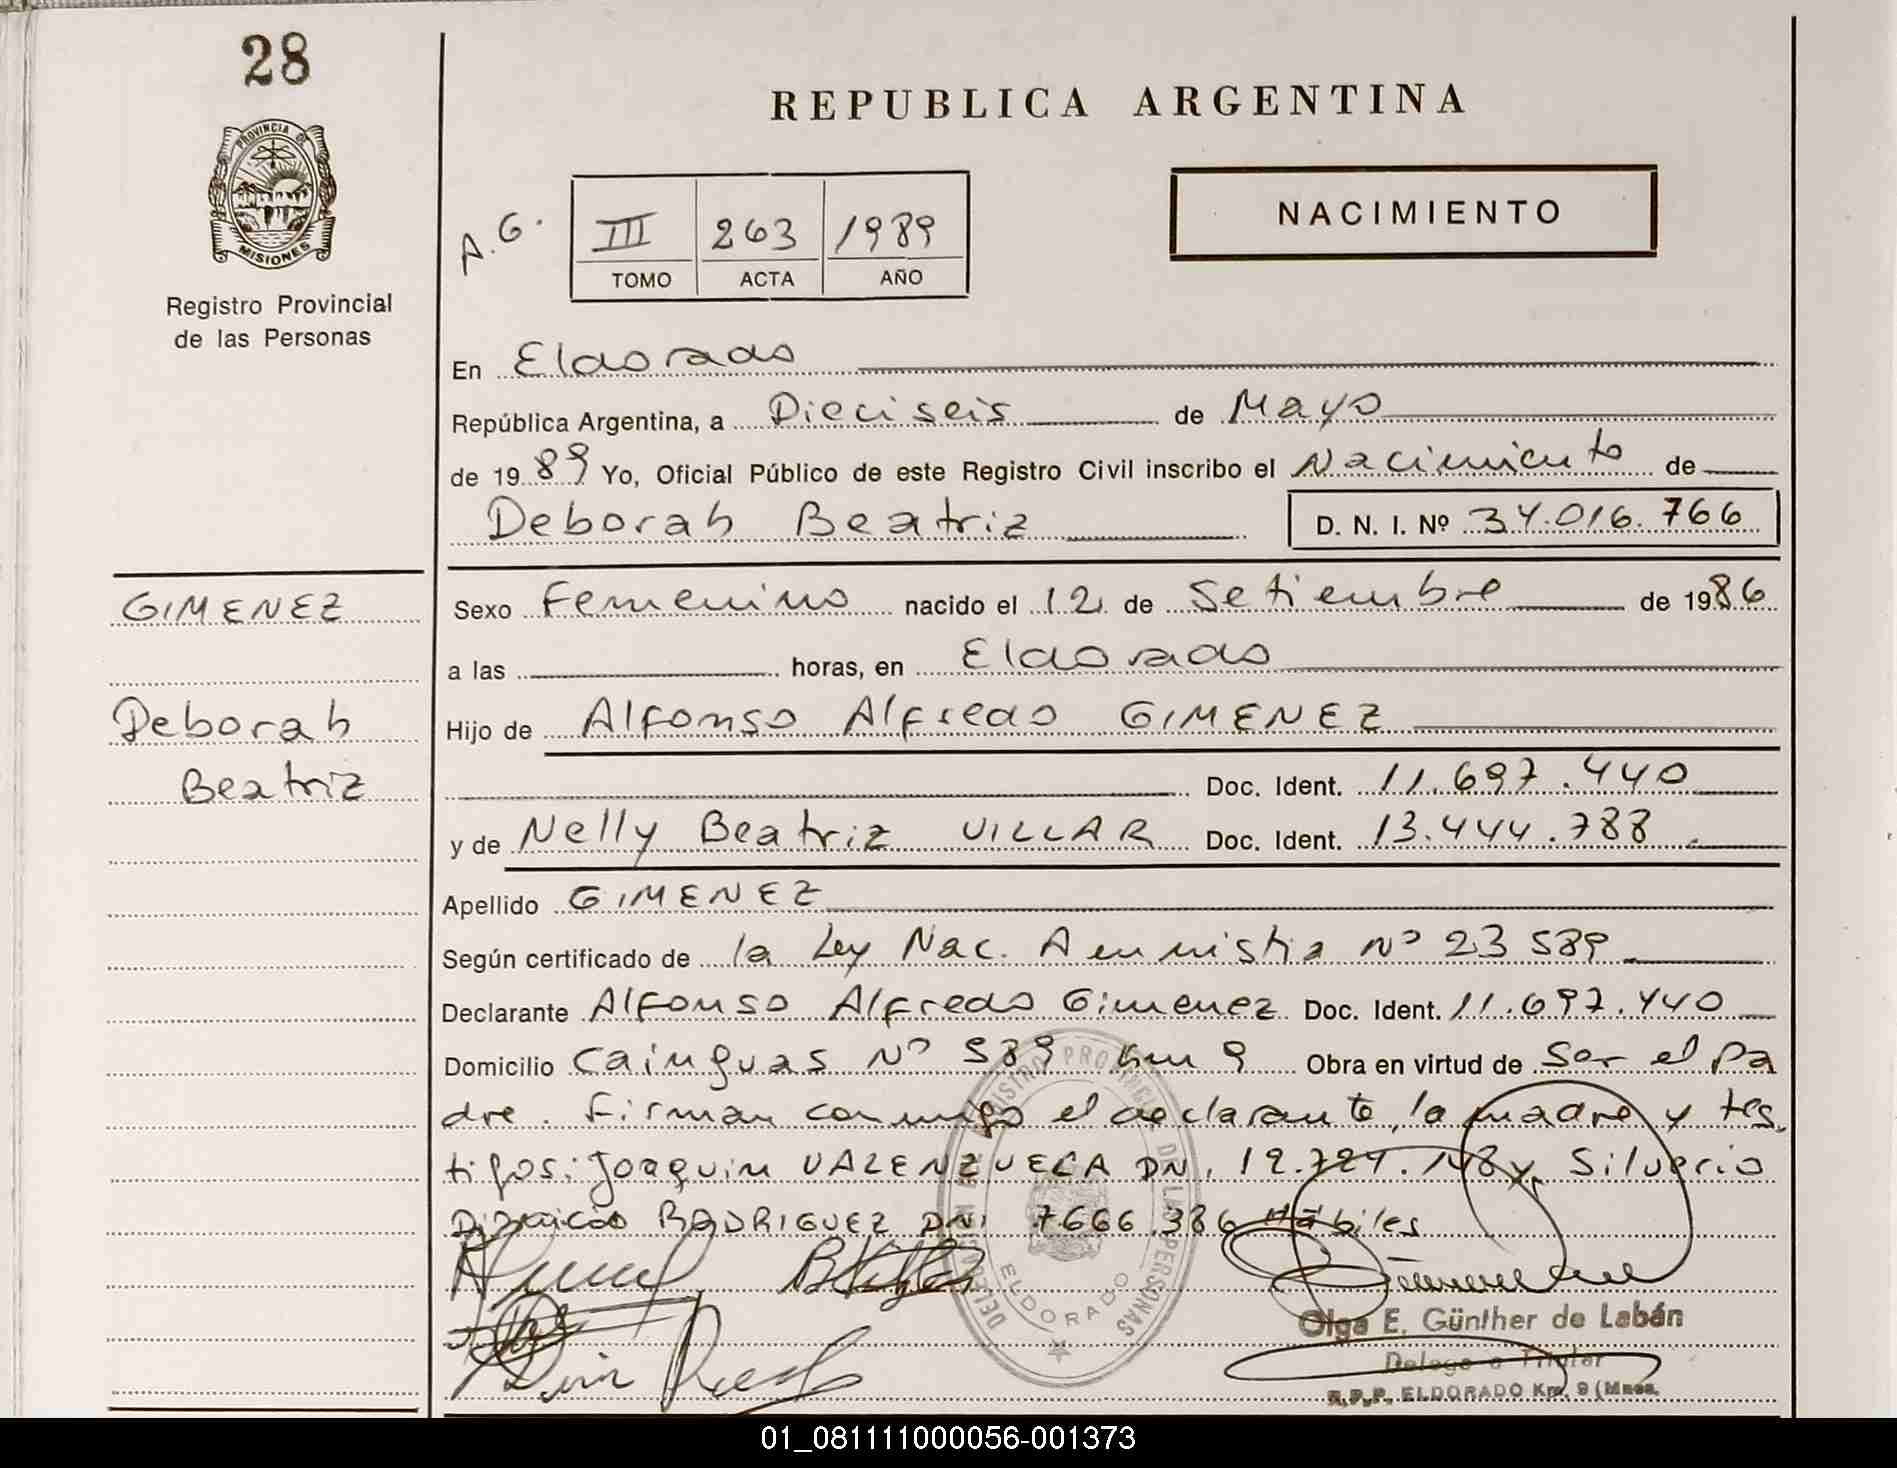 28
PROVINCIA DE
MISIONES
Registro Provincial
de las Personas
GIMENEZ
Deborah
Beatriz
REPUBLICA ARGENTINA
A.G.
III 263 1989
TOMO ACTA AÑO
NACIMIENTO
En Eldorado
República Argentina, a Dieciseis de Mayo
de 1989 Yo, Oficial Público de este Registro Civil inscribo el Nacimiento de
Deborah Beatriz D. N. I. Nº 34.016.766
Sexo Femenino nacido el 12 de Setiembre de 1986
a las horas, en Eldorado
Hijo de Alfonso Alfredo GIMENEZ
Doc. Ident. 11.697.440
y de Nelly Beatriz VILLAR Doc. Ident. 13.444.788
Apellido GIMENEZ
Según certificado de la Ley Nac. Amnistia Nº 23589
Declarante Alfonso Alfredo Gimenez Doc. Ident. 11.697.440
Domicilio Cainguas Nº 589 km 9 Obra en virtud de Ser el Pa
dre. Firman conmigo el declarante, la madre y tes
tigos: Joaquin VALENZUELA DNI y Silverio
RODRIGUEZ DNI 7666.386 Hábiles
REGISTRO PROVINCIAL DE LAS PERSONAS
ELDORADO
Olga E. Günther de Labán
Delegada Titular
R.P.P. ELDORADO Km. 9 (Mnes.
01_081111000056-001373